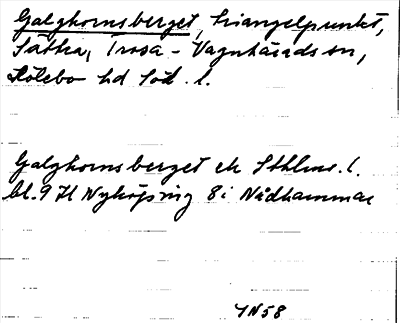 Galghornsberget, triangelpunkt,
Sätra, Trosa-Vagnhärads sn,
Hölebo hd Söd. l.
Galghornsberget ek Sthlms. l.
bl. 9 H Nyköping 8 i Nådhammar
YN58